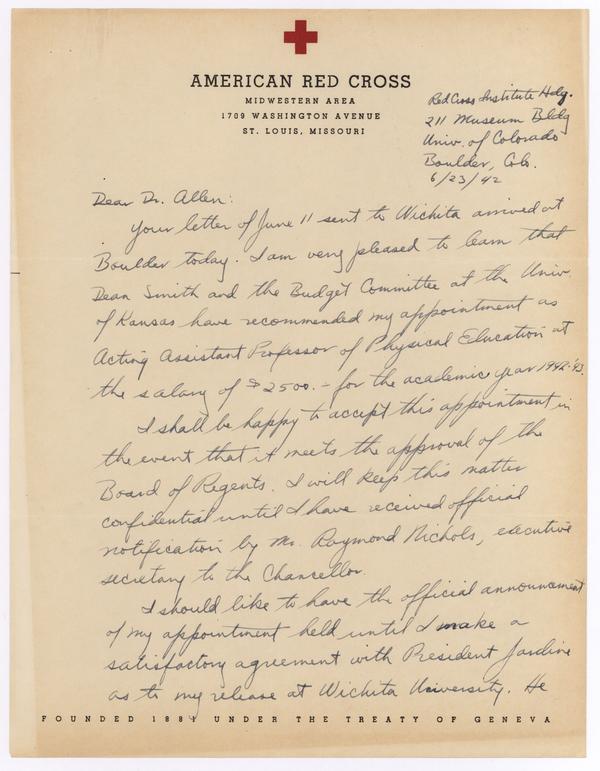 AMERICAN RED CROSS
MIDWESTERN AREA
1709 WASHINGTON AVENUE
ST. LOUIS, MISSOURI
Red Cross Institute Hdq.
211 Museum Bldg
Univ. of Colorado
Boulder, Colo.
6/23/42
Dear Dr. Allen:
Your letter of June 11 sent to Wichita arrived at
Boulder today. I am very pleased to learn that
Dean Smith and the Budget Committee at the Univ.
of Kansas have recommended my appointment as
Acting Assistant Professor of Physical Education at
the salary of $2500.- for the academic year 1942-'43.
I shall be happy to accept this appointment in
the event that it meets the approval of the
Board of Regents. I will keep this matter
confidential until I have received official
notification by Mr. Raymond Nichols, executive
secretary to the Chancellor.
I should like to have the official announcement
of my appointment held until I make a
satisfactory agreement with President Jardine
as to my release at Wichita University. He
FOUNDED 1881 UNDER THE TREATY OF GENEVA